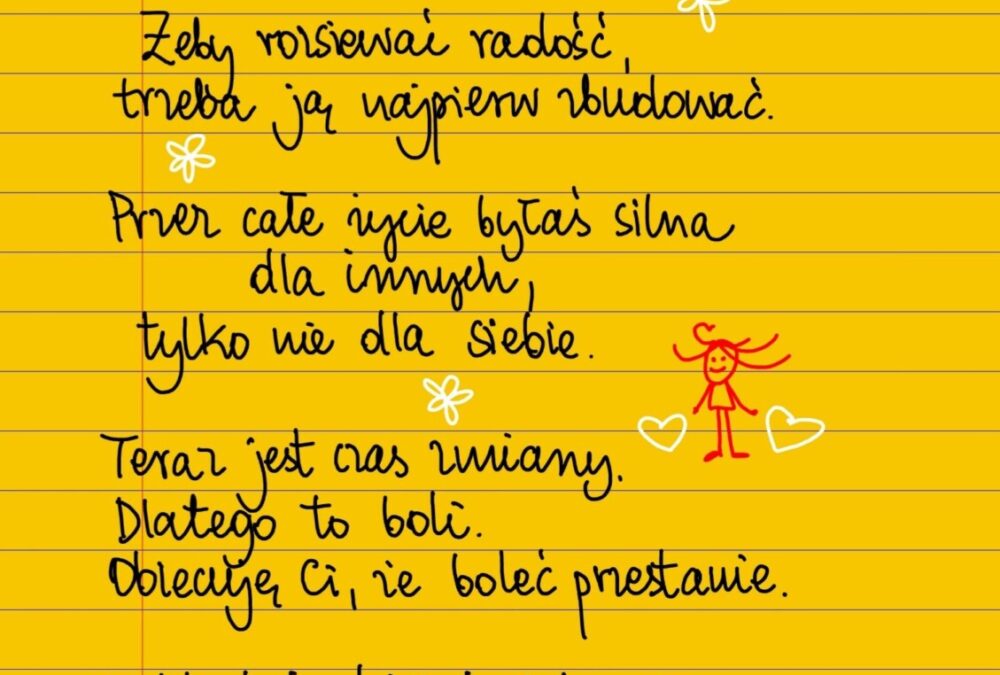 Żeby rozsiewać radość,
trzeba ją najpierw zbudować.
Przez całe życie byłaś silna
dla innych,
tylko nie dla siebie.
Teraz jest czas zmiany.
Dlatego to boli.
Obiecuję Ci, że boleć przestanie.